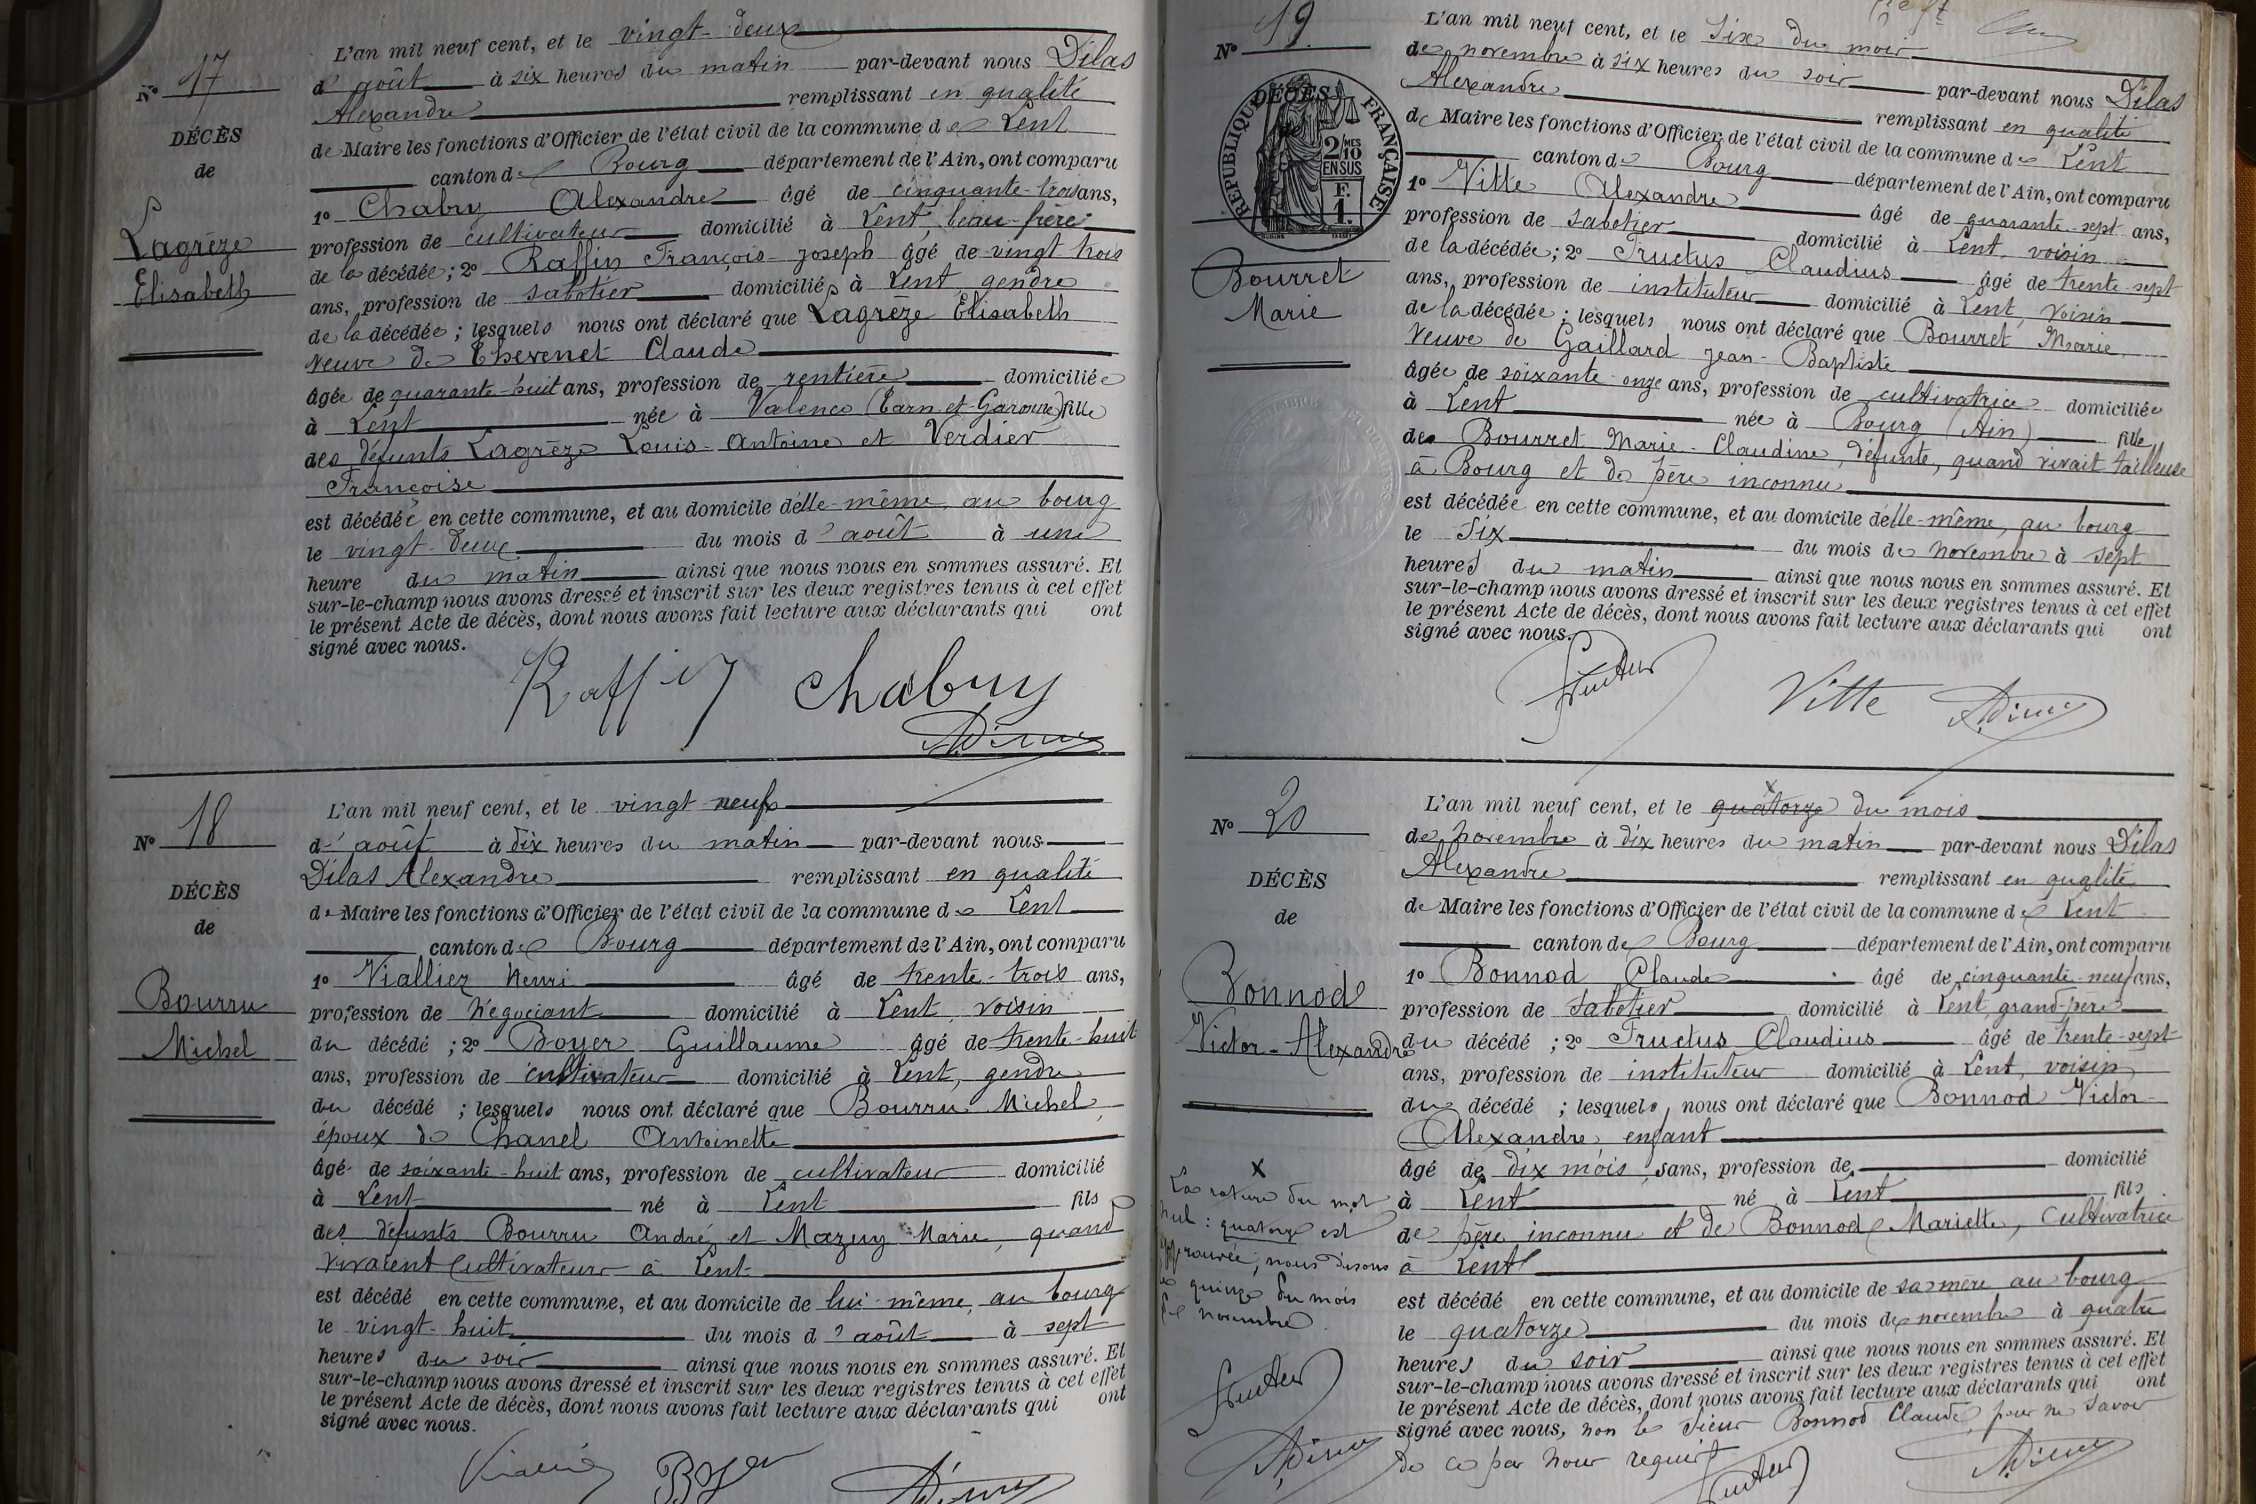 N° 17
DÉCÈS
de
Lagrèze
Elisabeth
L'an mil neuf cent, et le vingt-deux
d'août à six heures du matin par-devant nous Dilas
Alexandre remplissant en qualité
de Maire les fonctions d'Officier de l'état civil de la commune de Lent
canton de Bourg département de l'Ain, ont comparu
1° Chabry Alexandre âgé de cinquante-trois ans,
profession de cultivateur domicilié à Lent, beau-frère
de la décédée ; 2° Raffin François-Joseph âgé de vingt trois
ans, profession de sabotier domiciliés à Lent, gendre
de la décédée ; lesquels nous ont déclaré que Lagrèze Elisabeth
veuve de Thevenet Claude
âgée de quarante-huit ans, profession de rentière domiciliée
à Lent née à Valence (Tarn et Garonne) fille
des défunts Lagrèze Louis-Antoine et Verdier
Françoise
est décédée en cette commune, et au domicile d'elle-même, au bourg
le vingt-deux du mois d'août à une
heure du matin ainsi que nous nous en sommes assuré. Et
sur-le-champ nous avons dressé et inscrit sur les deux registres tenus à cet effet
le présent Acte de décès, dont nous avons fait lecture aux déclarants qui ont
signé avec nous.
Raffin Chabry
ADilas
N° 18
DÉCÈS
de
Bourru
Michel
L'an mil neuf cent, et le vingt-neuf
d'août à dix heures du matin par-devant nous
Dilas Alexandre remplissant en qualité
de Maire les fonctions d'Officier de l'état civil de la commune de Lent
canton de Bourg département de l'Ain, ont comparu
1° Viallier Henri âgé de trente-trois ans,
profession de négociant domicilié à Lent, voisin
du décédé ; 2° Boyer Guillaume âgé de trente-huit
ans, profession de cultivateur domicilié à Lent, gendre
du décédé ; lesquels nous ont déclaré que Bourru Michel,
époux de Chanel Antoinette
âgé de soixante-huit ans, profession de cultivateur domicilié
à Lent né à Lent fils
des défunts Bourru André et Mazuy Marie, quand
vivaient cultivateurs à Lent
est décédé en cette commune, et au domicile de lui-même, au bourg
le vingt-huit du mois d'août à sept
heures du soir ainsi que nous nous en sommes assuré. Et
sur-le-champ nous avons dressé et inscrit sur les deux registres tenus à cet effet
le présent Acte de décès, dont nous avons fait lecture aux déclarants qui ont
signé avec nous.
Boyer
N° 19
DÉCÈS
RÉPUBLIQUE FRANÇAISE
2/10 MES
EN SUS
F.
1.
Bourret
Marie
L'an mil neuf cent, et le six du mois
de novembre à six heures du soir par-devant nous Dilas
Alexandre remplissant en qualité
de Maire les fonctions d'Officier de l'état civil de la commune de Lent
canton de Bourg département de l'Ain, ont comparu
1° Vitte Alexandre âgé de quarante-sept ans,
profession de sabotier domicilié à Lent, voisin
de la décédée ; 2° Fructus Claudius âgé de trente-sept
ans, profession de instituteur domicilié à Lent, voisin
de la décédée ; lesquels nous ont déclaré que Bourret Marie
veuve de Gaillard Jean-Baptiste
âgée de soixante-onze ans, profession de cultivatrice domiciliée
à Lent née à Bourg (Ain) fille
de Bourret Marie-Claudine, défunte, quand vivait tailleuse
à Bourg et de père inconnu
est décédée en cette commune, et au domicile d'elle-même, au bourg
le six du mois de novembre à sept
heures du matin ainsi que nous nous en sommes assuré. Et
sur-le-champ nous avons dressé et inscrit sur les deux registres tenus à cet effet
le présent Acte de décès, dont nous avons fait lecture aux déclarants qui ont
signé avec nous.
Fructus Vitte ADilas
N° 20
DÉCÈS
de
Bonnod
Victor-Alexandre
x
La rature du mot
nul : quatorze est
approuvée ; nous disons
le quinze du mois
de novembre
Fructus
ADilas
x
L'an mil neuf cent, et le quatorze du mois
de novembre à dix heures du matin par-devant nous Dilas
Alexandre remplissant en qualité
de Maire les fonctions d'Officier de l'état civil de la commune de Lent
canton de Bourg département de l'Ain, ont comparu
1° Bonnod Claude âgé de cinquante-neuf ans,
profession de sabotier domicilié à Lent, grand-père
du décédé ; 2° Fructus Claudius âgé de trente-sept
ans, profession de instituteur domicilié à Lent, voisin
du décédé ; lesquels nous ont déclaré que Bonnod Victor-
Alexandre, enfant
âgé de dix mois, sans, profession de domicilié
à Lent né à Lent fils
de père inconnu et de Bonnod Mariette, cultivatrice
à Lent
est décédé en cette commune, et au domicile de sa mère au bourg
le quatorze du mois de novembre à quatre
heures du soir ainsi que nous nous en sommes assuré. Et
sur-le-champ nous avons dressé et inscrit sur les deux registres tenus à cet effet
le présent Acte de décès, dont nous avons fait lecture aux déclarants qui ont
signé avec nous, non le sieur Bonnod Claude, pour ne savoir
de ce par nous requis
Fructus ADilas